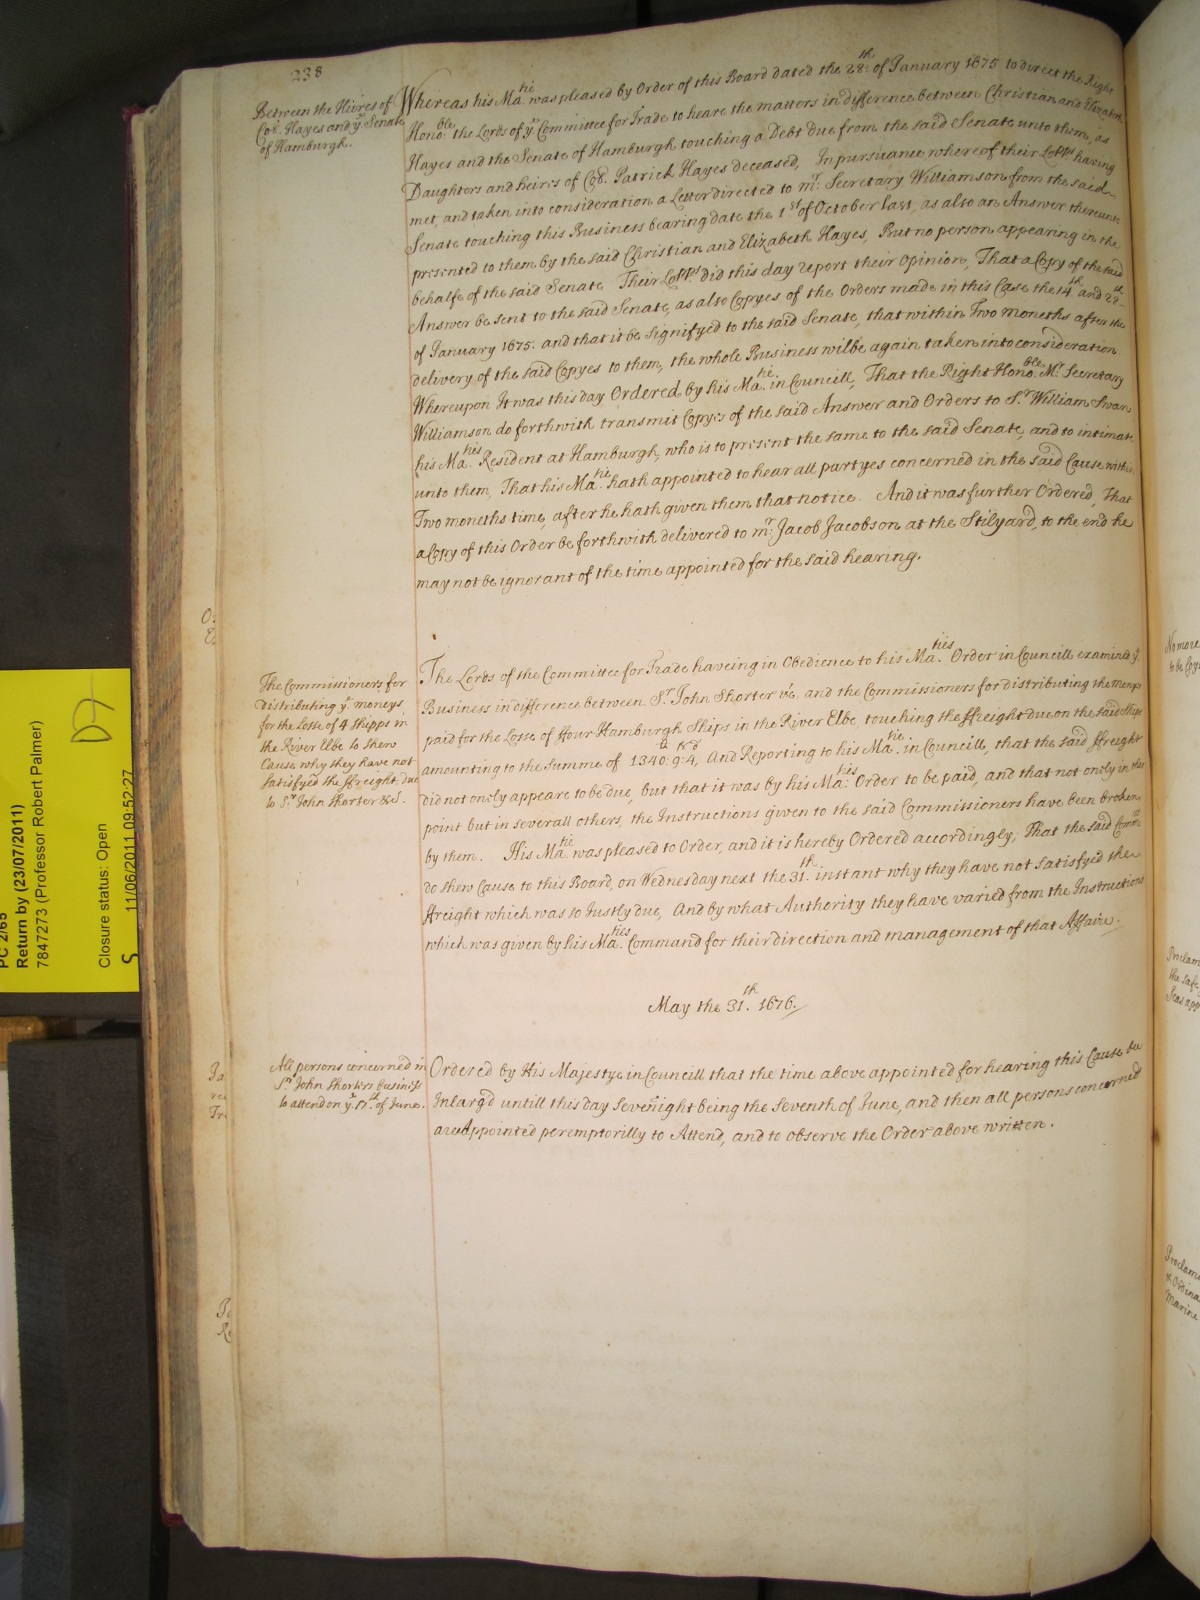 238
Between the Heires of
Coll. Hayes and ye Senate
of Hamburgh.
Whereas his Matie was pleased by Order of this Board dated the 28th of January 1675 to direct the Right
Honoble the Lords of ye Committee for Trade to heare the matters in difference between Christian and Elizabeth
Hayes and the Senate of Hamburgh touching a Debt due from the said Senate unto them, as
Daughters and heires of Coll. Patrick Hayes deceased, In pursuance whereof their Lopps having
met, and taken into consideration a Letter directed to mr. Secretary Williamson from the said
Senate touching this Business bearing date the 1st of October last, as also an Answer thereunto
presented to them by the said Christian and Elizabeth Hayes, But no person appearing in the
behalfe of the said Senate Their Lopps did this day report their Opinion, That a Copy of the said
Answer be sent to the said Senate, as also Copyes of the Orders made in this Case the 14th and 28th
of January 1675. and that it be signifyed to the said Senate, that within Two moneths after the
delivery of the said Copyes to them, the whole Business wilbe again taken into consideration
Whereupon It was this day Ordered by his Matie in Councill, That the Right Honoble Mr. Secretary
Williamson do forthwith transmit Copyes of the said Answer and Orders to Sr. William Swan
his Maties Resident at Hamburgh, who is to present the same to the said Senate, and to intimate
unto them, That his Matie hath appointed to hear all partyes concerned in the said Cause within
Two moneths time, after he hath given them that notice. And it was further Ordered, That
a Copy of this Order be forthwith delivered to mr. Jacob Jacobson at the Stilyard, to the end he
may not be ignorant of the time appointed for the said hearing.
The Commissioners for
distributing ye moneys
for the Losse of 4 Shipps in
the River Elbe to shew
Cause why they have not
satisfyed the ffreight due
to Sr. John Shorter &c.
The Lords of the Committee for Trade haveing in Obedience to his Maties Order in Councill examined ye
Business in difference between Sr. John Shorter &c. and the Commissioners for distributing the moneys
paid for the Losse of ffour Hamburgh Ships in the River Elbe, touching the ffreight due on the said Ships
amounting to the summe of 1340: 9: 4, And Reporting to his Matie in Councill, that the said ffreight
did not onely appeare to be due, but that it was by his Maties Order to be paid, and that not onely in this
point but in severall others, the Instructions given to the said Commissioners have been broken
by them. His Matie was pleased to Order, and it is hereby Ordered accordingly, That the said Commrs
do shew Cause to this Board, on Wednesday next the 31th instant why they have not satisfyed the
ffreight which was so Justly due, And by what Authority they have varied from the Instructions
which was given by his Maties Command for their direction and management of that Affaire.
May the 31th 1676.
All persons concerned in
Sr. John Shorters business
to attend on ye 7th of June.
Ordered by His Majestye in Councill that the time above appointed for hearing this Cause be
Inlarg'd untill this day Sevenight being the Seventh of June, and then all persons concerned
are Appointed peremptorilly to Attend, and to observe the Order above written.
PC 2/65
Return by (23/07/2011)
7847273 (Professor Robert Palmer)
Closure status: Open
11/06/2011 09:52:27
S
D7
No more
Proclam
the safe
Seas app
Proclama
Marine